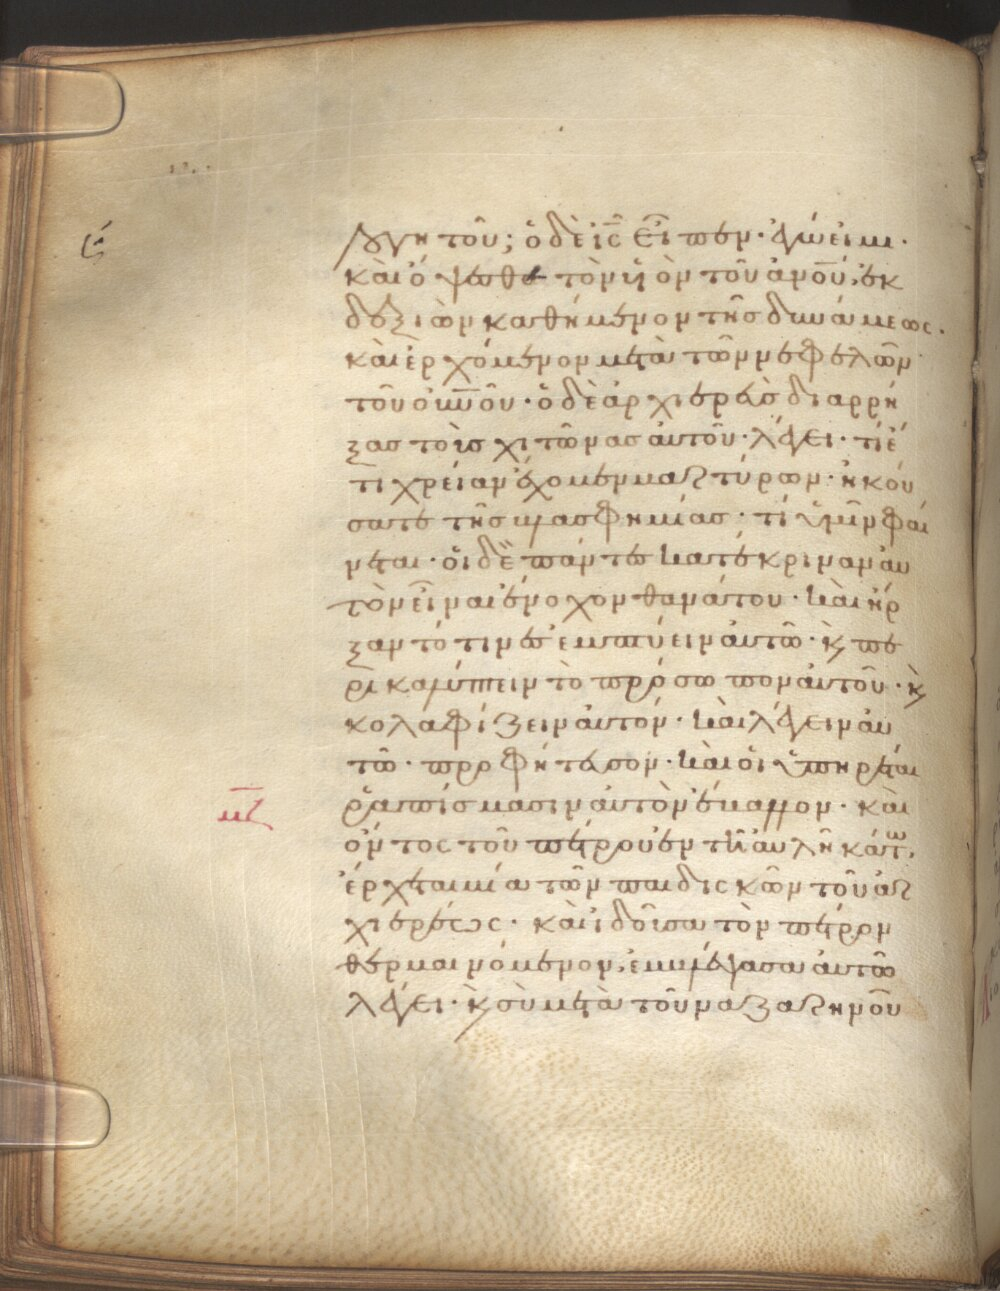 λογητοῦ; ὁ δὲ ις εἶπεν· ἐγώ εἰμι·
καὶ ὄψεσθε τὸν υἱὸν τοῦ ανου, ἐκ
δεξιῶν καθήμενον τῆς δυνάμεως·
καὶ ἐρχόμενον μετὰ τῶν νεφελῶν
τοῦ ουνου· ὁ δὲ ἀρχιερεὺς διαρρή
ξας τοὺς χιτῶνας αὐτοῦ· λέγει· τί ἔ
τι χρείαν ἔχομεν μαρτύρων· ἠκού
σατε τῆς βλασφημίας· τί ὑμῖν φαί
νεται· οἱ δὲ πάντες κατέκριναν αὐ
τὸν εἶναι ἔνοχον θανάτου· καὶ ἤρ
ξαντό τινες ἐμπτύειν αὐτῶ· κ πε
ρικαλύπτειν τὸ πρόσωπον αὐτοῦ· κ
κολαφίζειν αὐτόν· καὶ λέγειν αὐ
τῶ· προφήτευσον· καὶ οἱ ὑπηρέται
ῥαπίσμασιν αὐτὸν ἔβαλλον· καὶ
ὄντος τοῦ πέτρου ἐν τῆ αὐλῆ κάτω,
ἔρχεται μία τῶν παιδισκῶν τοῦ ἀρ
χιερέως· καὶ ἰδοῦσα τὸν πέτρον
θερμαινόμενον, ἐμβλέψασα αὐτῶ
λέγει· κ σὺ μετὰ τοῦ ναζαρηνοῦ